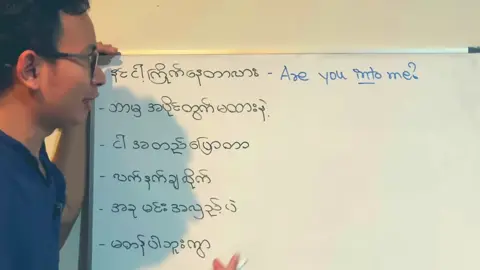 နင် ငါ့ကြိုက်နေတာလား - Are you into me?
- ဘာမှ အပိုင်တွက်မထားနဲ့
- ငါ အတည်ပြောတာ
- လက်နက်ချလိုက်
- အခု မင်းအလှည့်ပဲ
- မဟန်ပါဘူးကွာ